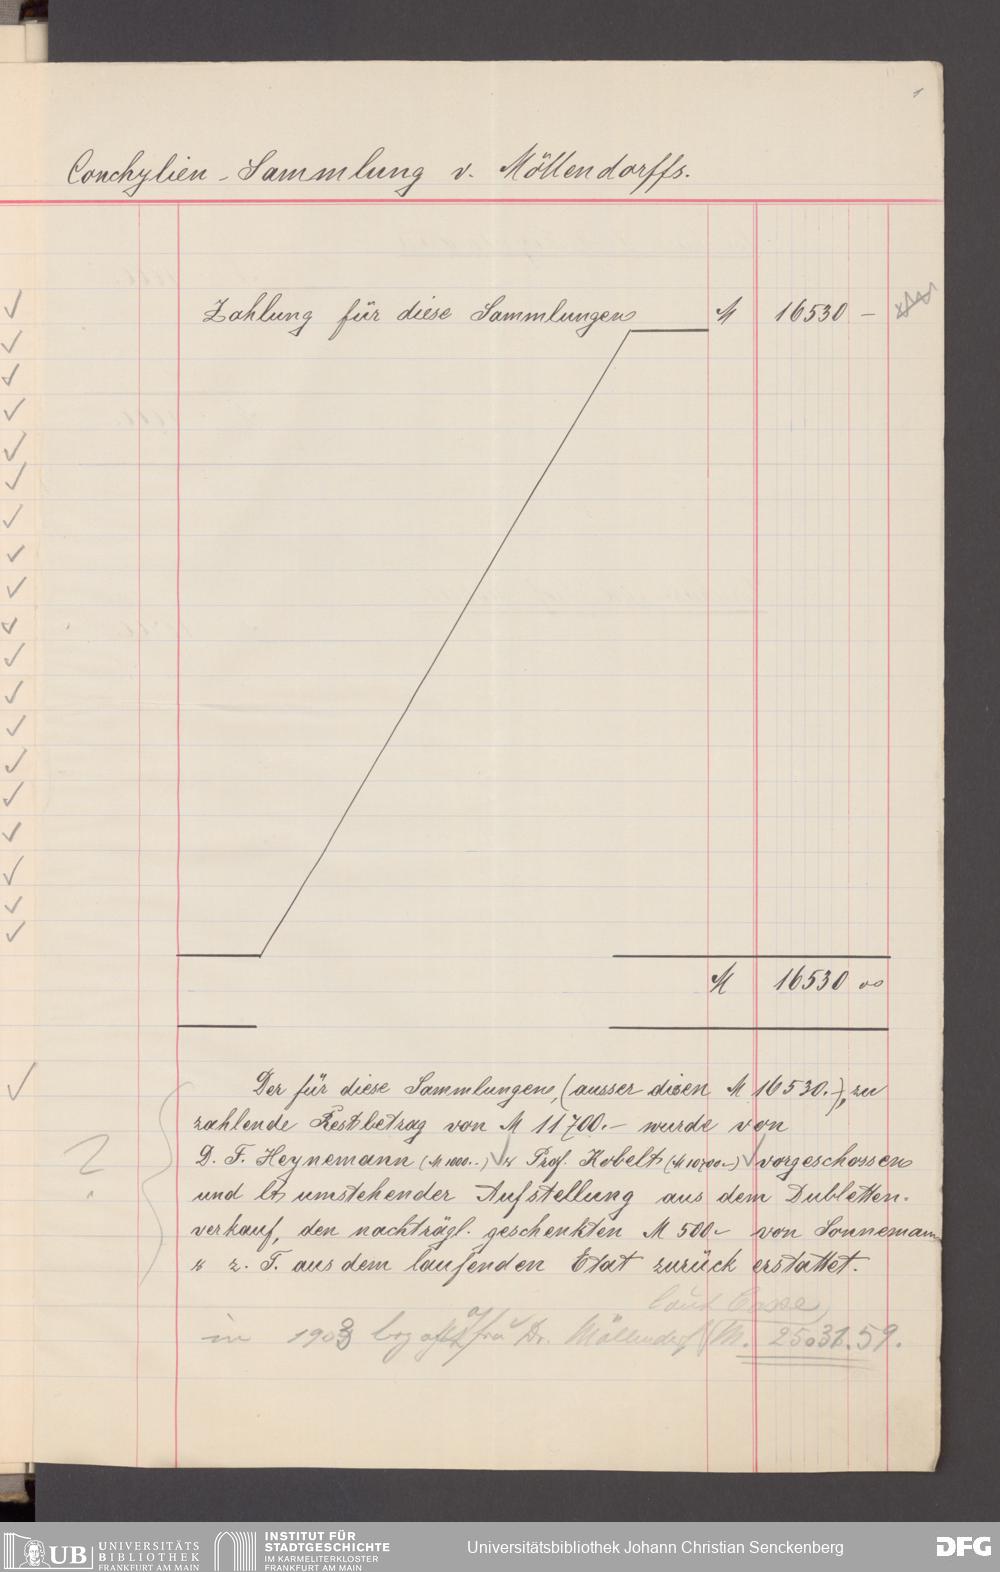 1
Conchylien-Sammlung v. Möllendorffs.
Zahlung für diese Sammlungen M 16530 –
M 16530 00
Der für diese Sammlungen, (ausser diesen M 16530.–), zu
zahlende Restbetrag von M 11700.– wurde von
D. F. Heynemann (M 1000.–) & Prof. Kobelt (M 10700.–) vorgeschossen
und lt umstehender Aufstellung aus dem Dubletten-
verkauf, den nachträgl. geschenkten M 500.– von Sonnemann
& z. T. aus dem laufenden Etat zurück erstattet.
laut Casse
in 1903 bez. an Frau Dr. Möllendorf M. 25031.59.
?
UB UNIVERSITÄTS
BIBLIOTHEK
FRANKFURT AM MAIN
INSTITUT FÜR
STADTGESCHICHTE
IM KARMELITERKLOSTER
FRANKFURT AM MAIN
Universitätsbibliothek Johann Christian Senckenberg
DFG